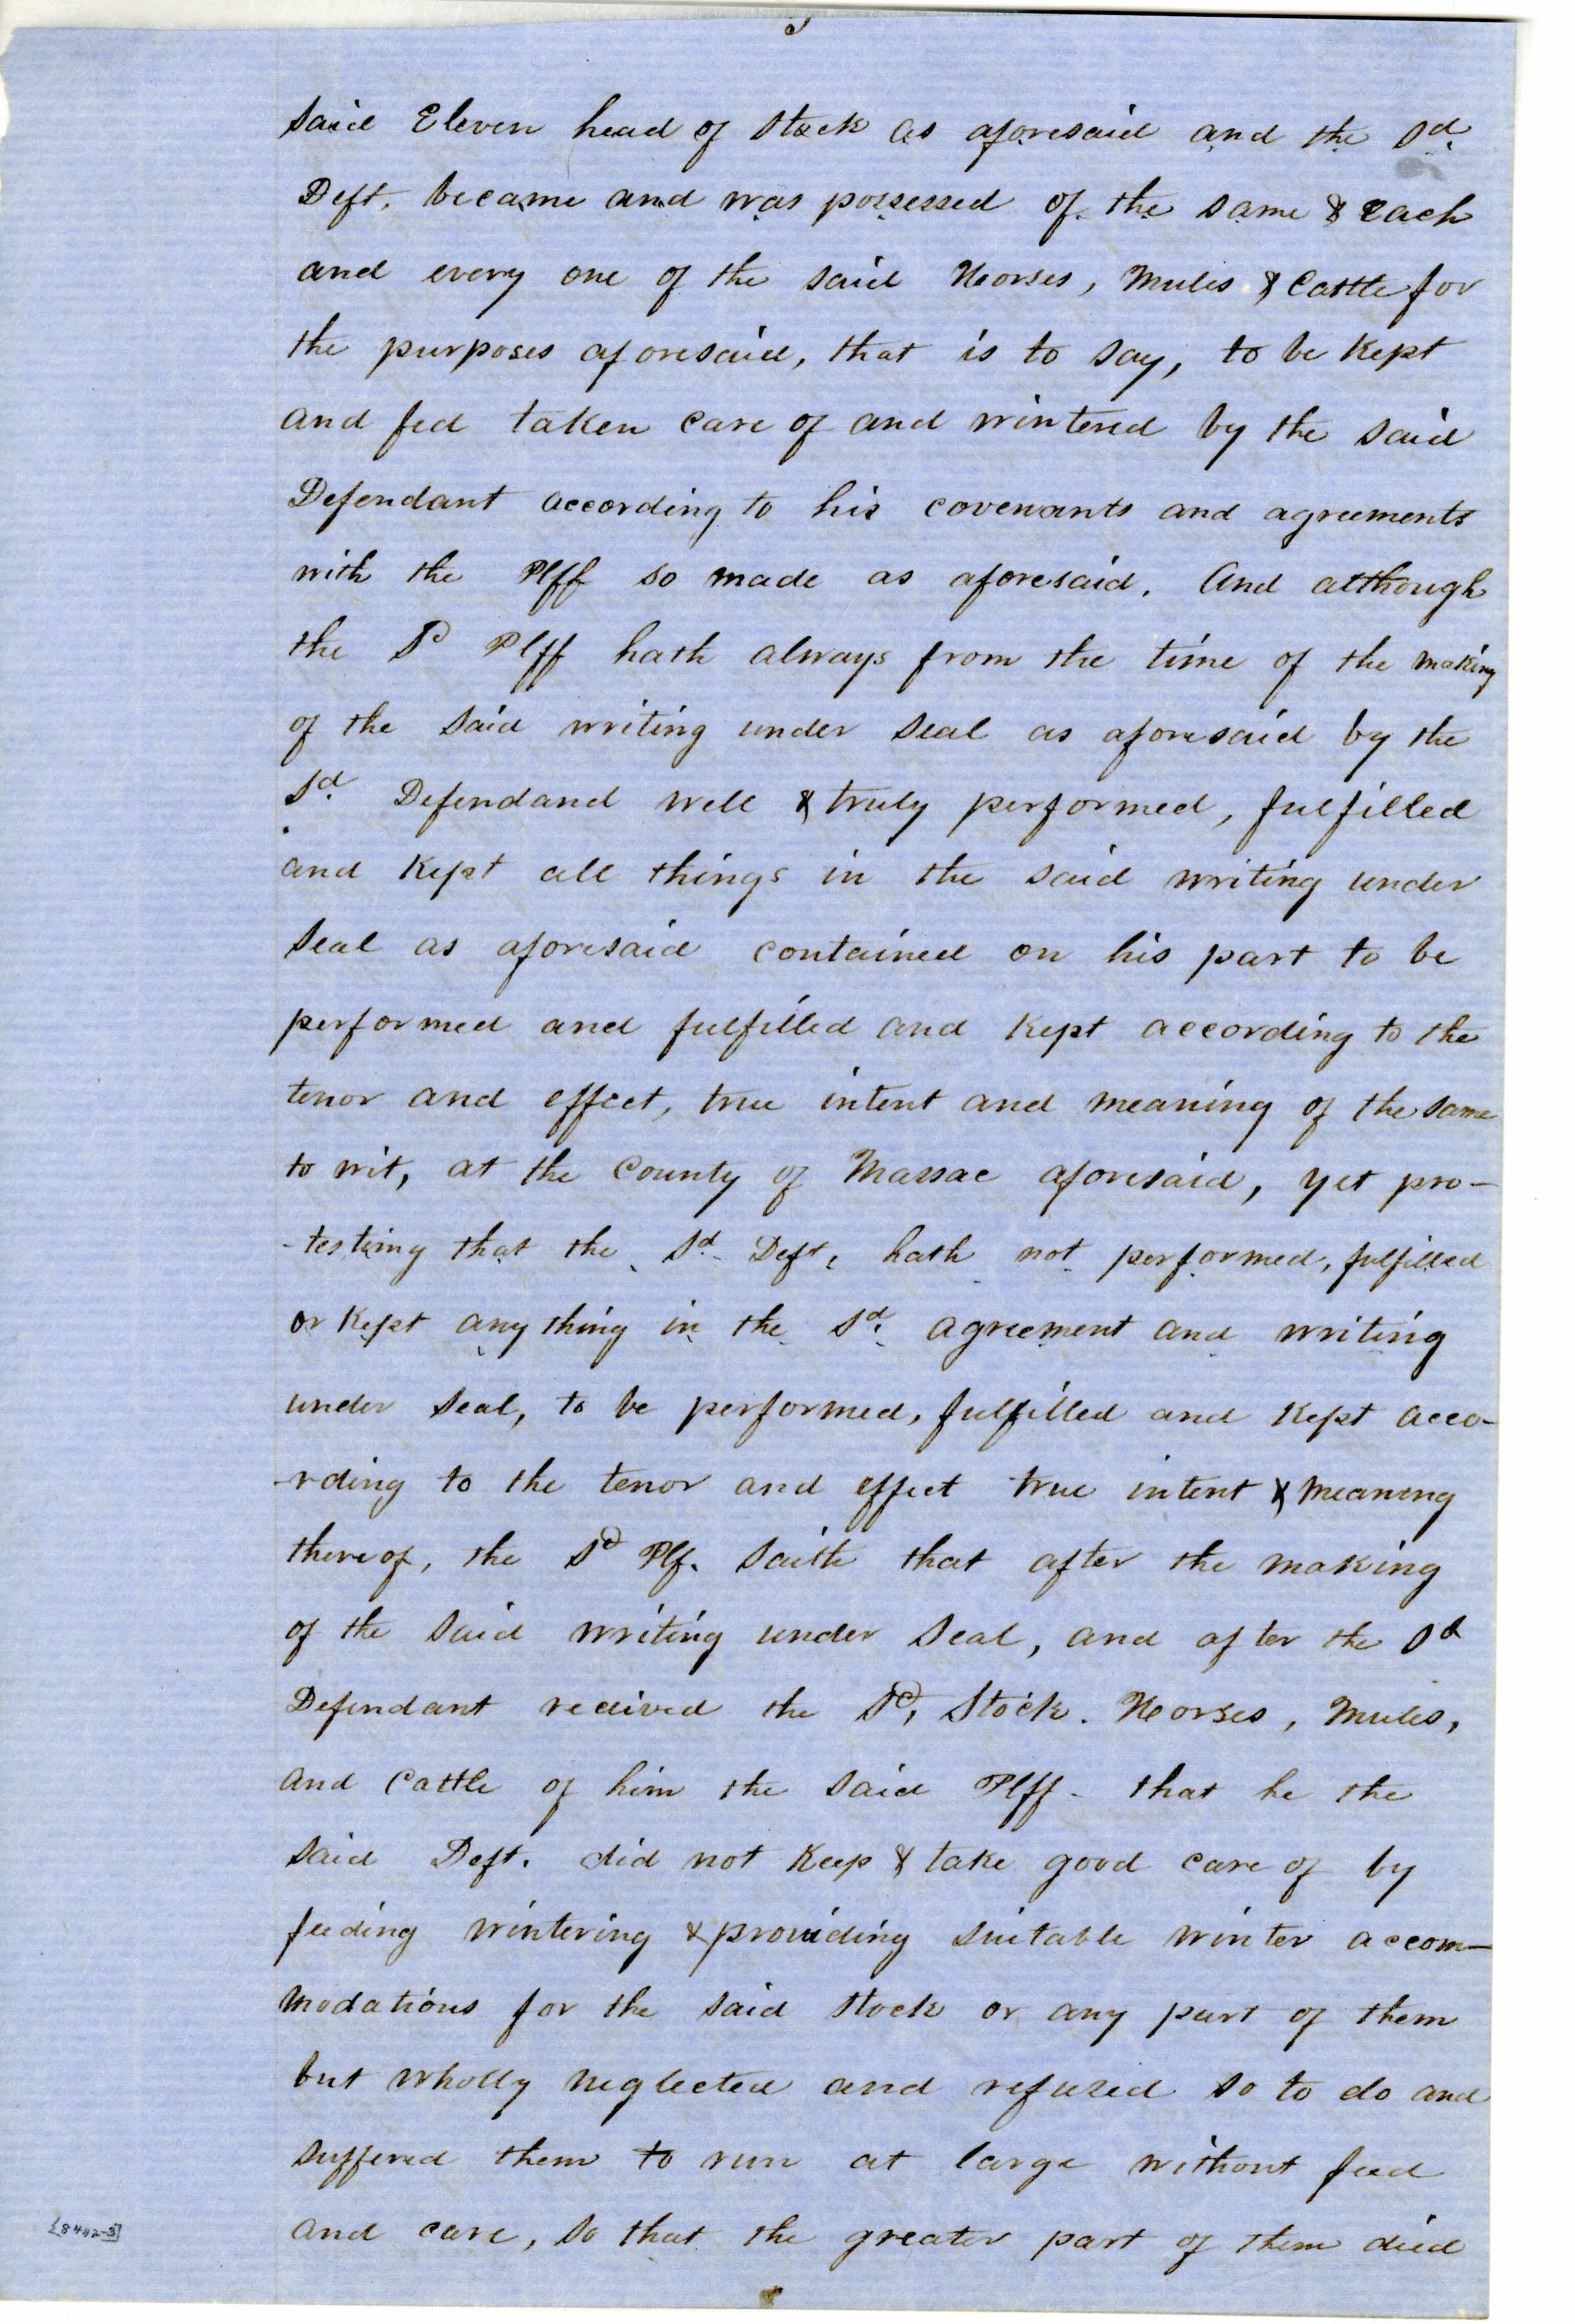 said Eleven head of Stock as aforesaid and the Sd.
Deft. became and was possessed of the same & each
and every one of the said Horses, Mules & Cattle for
the purposes aforesaid, that is to say, to be Kept
and fed taken care of and wintered by the said
Defendant according to his covenants and agreements
with the Plff so made as aforesaid. And although
the Sd Plff hath always from the time of the making
of the said writing under seal as aforesaid by the
Sd. Defendand well & truly performed, fulfilled
and Kept all things in the said writing under
seal as aforesaid contained on his part to be
performed and fulfilled and Kept according to the
tenor and effect, true intent and meaning of the same
to wit, at the County of Massac aforesaid, yet pro-
-testing that the Sd. Deft, hath not performed, fulfilled
or Kept any thing in the Sd. agreement and writing
under seal, to be performed, fulfilled and Kept acco-
-rding to the tenor and effect true intent & meaning
thereof, the Sd Plf. saith that after the making
of the said writing under seal, and after the Sd
Defendant recived the Sd, Stock. Horses, Mules,
and Cattle of him the said Plff - that he the
said Deft. did not Keep & take good care of by
feeding wintering & providing suitable winter accom-
modations for the said stock or any part of them
but wholly neglected and refused so to do and
suffered them to run at large without feed
and care, so that the greater part of them died
[8442-3]